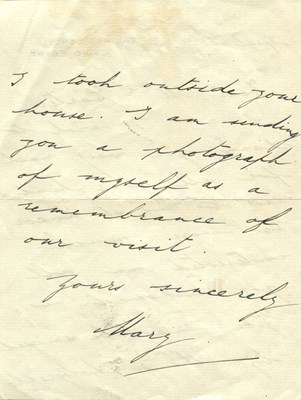 I took outside your
house. I am sending
you a photograph
of myself as a
remembrance of
our visit.
Yours sincerely
Mary